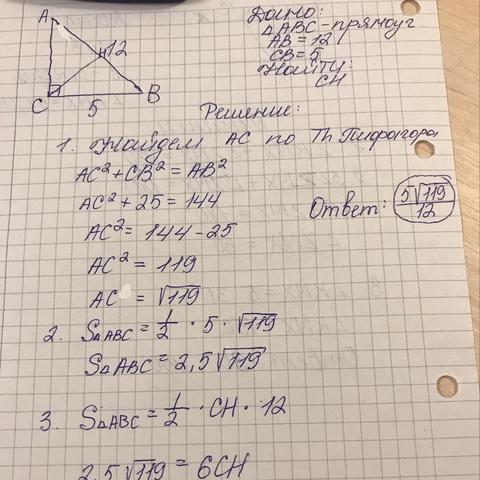 A
H
12
C
5
B
Дано:
△ABC - прямоуг
AB = 12
CB = 5
Найти:
CH
Решение:
1. Найдем AC по Th Пифагора
AC² + CB² = AB²
AC² + 25 = 144
AC² = 144 - 25
AC² = 119
AC = √119
2. S△ABC = 1/2 · 5 · √119
S△ABC = 2,5√119
3. S△ABC = 1/2 · CH · 12
2,5√119 = 6CH
Ответ: 5√119/12